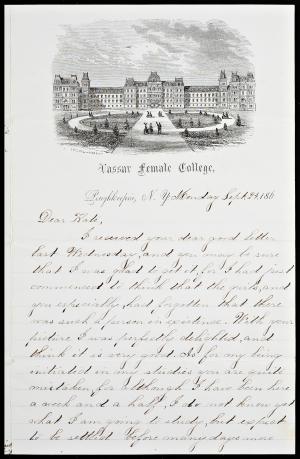 Vassar Female College,
Poughkeepsie, N. Y. Monday Sept. 24, 186
Dear Kate,
I received your dear good letter
last Wednesday, and you may be sure
that I was glad to get it, for I had just
commenced to think that the girls, and
you especially, had forgotten that there
was such a person in existence. With your
picture I was perfectly delighted, and
think it is very good. As for my being
initiated in my studies you are quite
mistaken, for although I have been here
a week and a half, I do not know yet
what I am going to study, but expect
to be settled before many days more